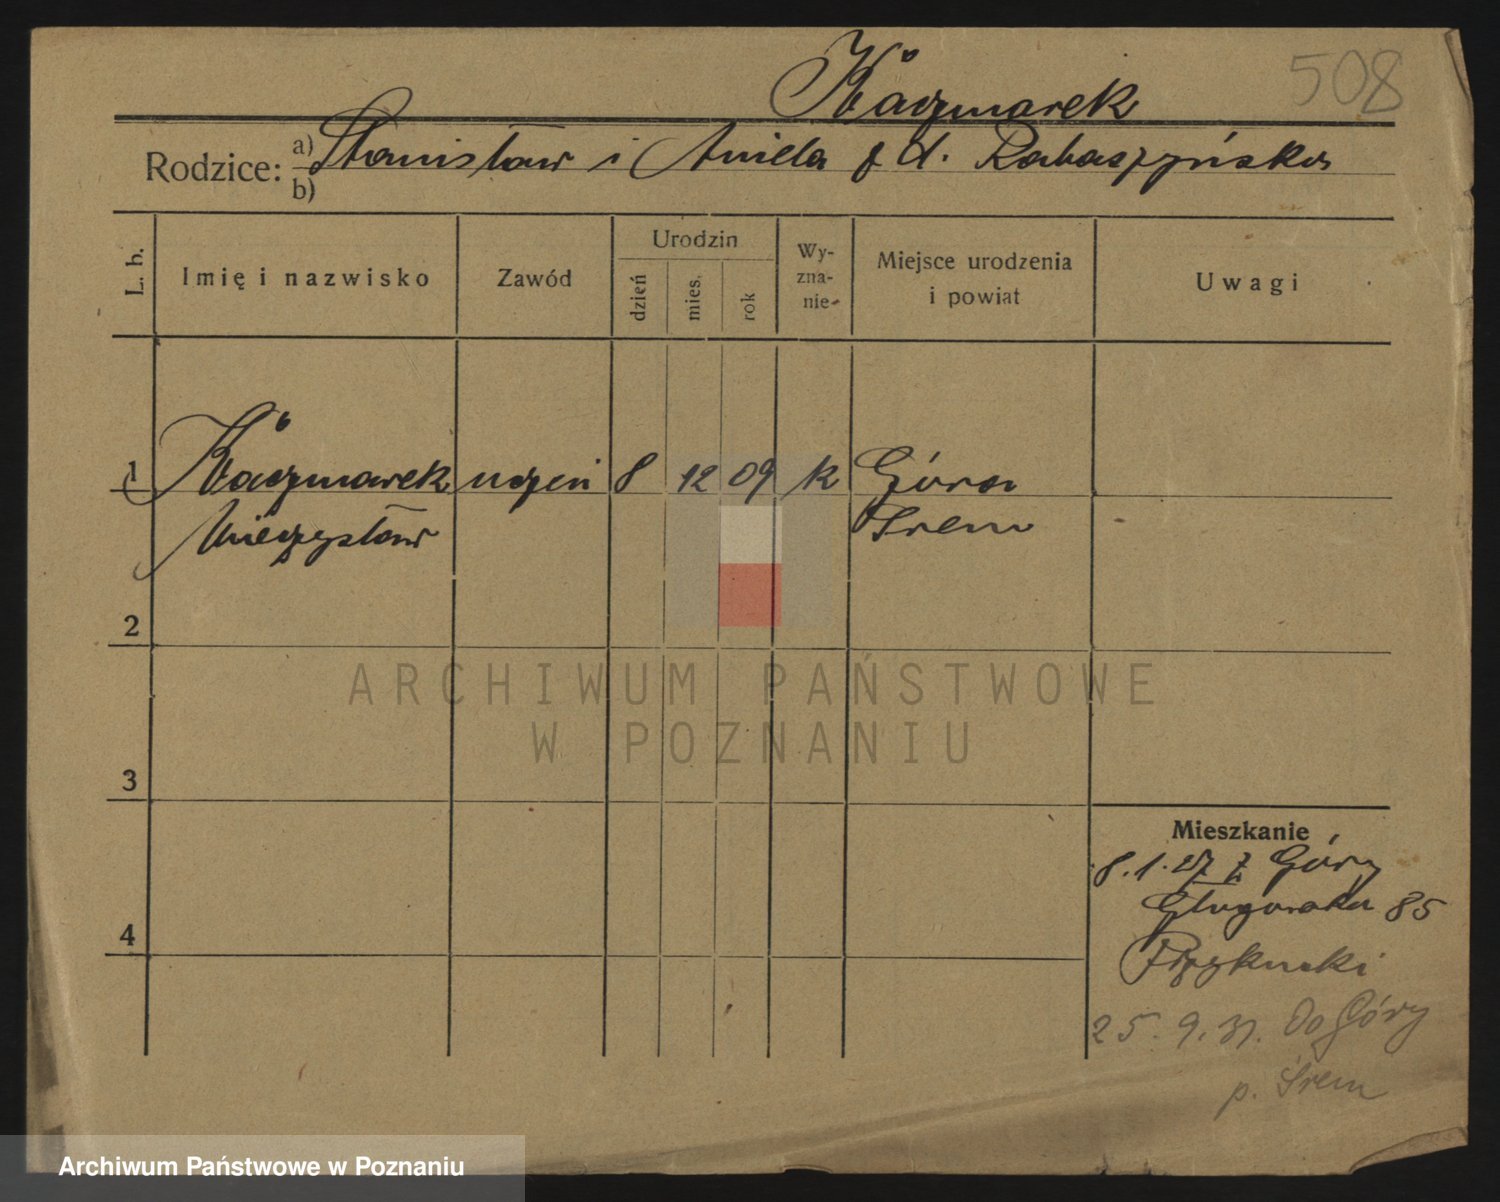 508
Kaczmarek
Rodzice: a) Stanisław i Aniela
b)
L. b.
Imię i nazwisko
Zawód
Urodzin
dzień
mies.
rok
Wy-
zna-
nie
Miejsce urodzenia
i powiat
Uwagi
1 Kaczmarek uczeń 8 12 09 k Góra
Mieczysław Śrem
2
ARCHIWUM PAŃSTWOWE
W POZNANIU
3
Mieszkanie
8.1.27 z Góry
85
4
25.9.31. Do Góry
p. Śrem
Archiwum Państwowe w Poznaniu